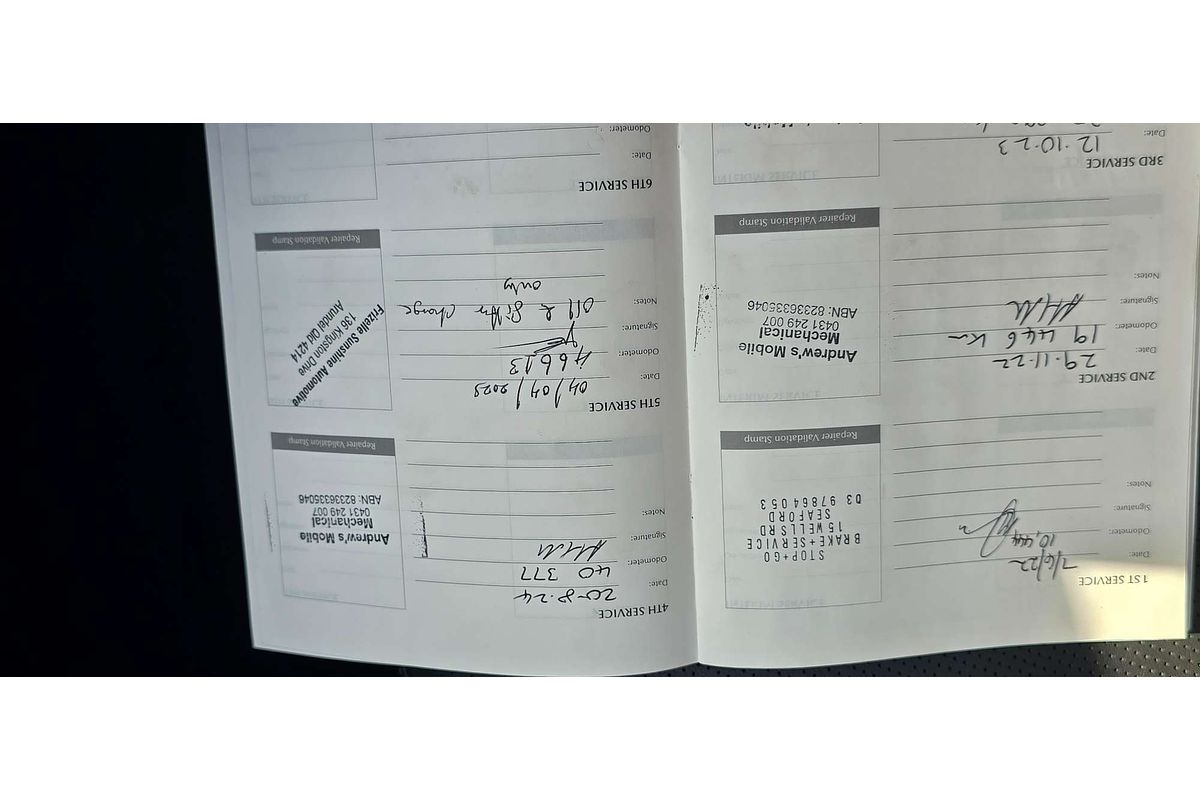 1ST SERVICE
Date: 7/6/22
Odometer: 10,444
Signature:
Notes:
STOP+GO
BRAKE+SERVICE
15 WELLS RD
SEAFORD
03 9786 4053
Repairer Validation Stamp
2ND SERVICE
Date: 29.11.22
Odometer: 19 446 Km
Signature:
Notes:
Andrew's Mobile
Mechanical
0431 249 007
ABN: 82336335046
Repairer Validation Stamp
3RD SERVICE
Date: 12.10.23
4TH SERVICE
Date: 20-8-24
Odometer: 40 377
Signature:
Notes:
Andrew's Mobile
Mechanical
0431 249 007
ABN: 82336335046
Repairer Validation Stamp
5TH SERVICE
Date: 04/04/2025
Odometer: 46613
Signature:
Notes: Oil & Filter change
only
Frizelle Sunshine Automotive
136 Kingston Drive
Arundel Qld 4214
Repairer Validation Stamp
6TH SERVICE
Date:
Odometer: